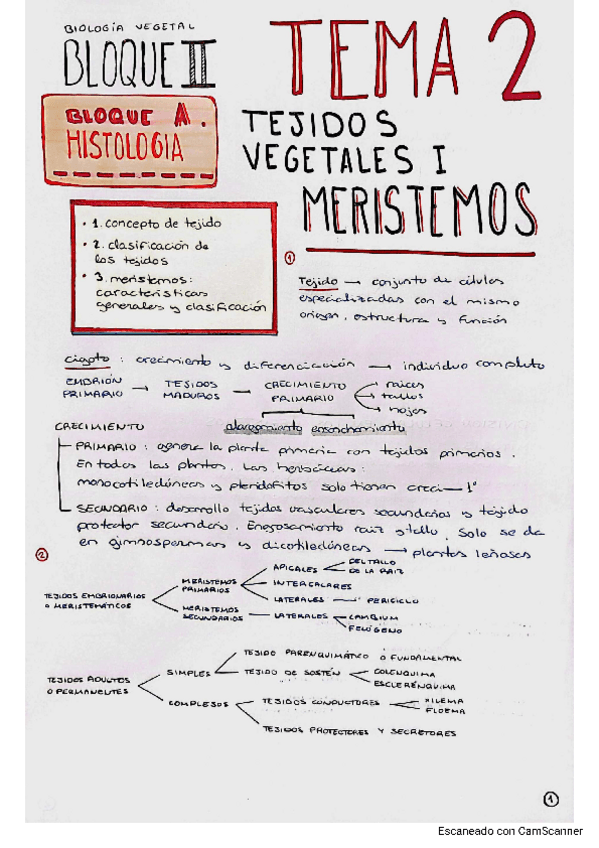 BIOLOGÍA VEGETAL
BLOQUE II
TEMA 2
BLOQUE A.
HISTOLOGIA
TEJIDOS
VEGETALES I
MERISTEMOS
• 1. concepto de tejido
• 2. clasificación de
los tejidos
• 3. meristemos:
características
generales y clasificación
1
Tejido → conjunto de células
especializadas con el mismo
origen, estructura y función
Cigoto: crecimiento y diferenciación → individuo completo
EMBRIÓN PRIMARIO → TEJIDOS MADUROS → CRECIMIENTO PRIMARIO
raíces
tallos
hojas
CRECIMIENTO
alargamiento ensanchamiento
PRIMARIO: genera la planta primaria con tejidos primarios.
En todas las plantas. Las herbáceas:
monocotiledóneas y pteridofitos solo tienen creci— 1º
SECUNDARIO: desarrollo tejidos vasculares secundarios y tejido
protector secundario. Engrosamiento raíz y tallo. Solo se da
en gimnospermas y dicotiledóneas → plantas leñosas
2
TEJIDOS EMBRIONARIOS
O MERISTEMÁTICOS
MERISTEMOS
PRIMARIOS
APICALES
DEL TALLO
DE LA RAIZ
INTERCALARES
LATERALES → PERICICLO
MERISTEMOS
SECUNDARIOS
LATERALES
CAMBIUM
FELÓGENO
TEJIDOS ADULTOS
O PERMANENTES
SIMPLES
TEJIDO PARENQUIMÁTICO O FUNDAMENTAL
TEJIDO DE SOSTÉN
COLENQUIMA
ESCLERÉNQUIMA
COMPLEJOS
TEJIDOS CONDUCTORES
XILEMA
FLOEMA
TEJIDOS PROTECTORES Y SECRETORES
1
Escaneado con CamScanner